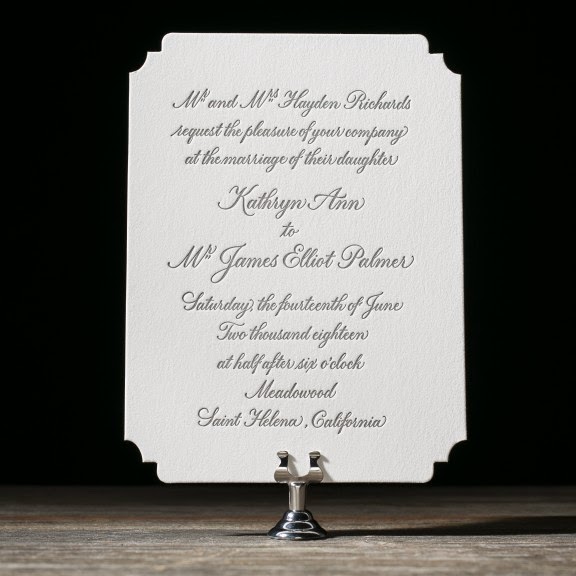 Mr and Mrs Hayden Richards
request the pleasure of your company
at the marriage of their daughter
Kathryn Ann
to
Mr James Elliot Palmer
Saturday, the fourteenth of June
Two thousand eighteen
at half after six o'clock
Meadowood
Saint Helena, California